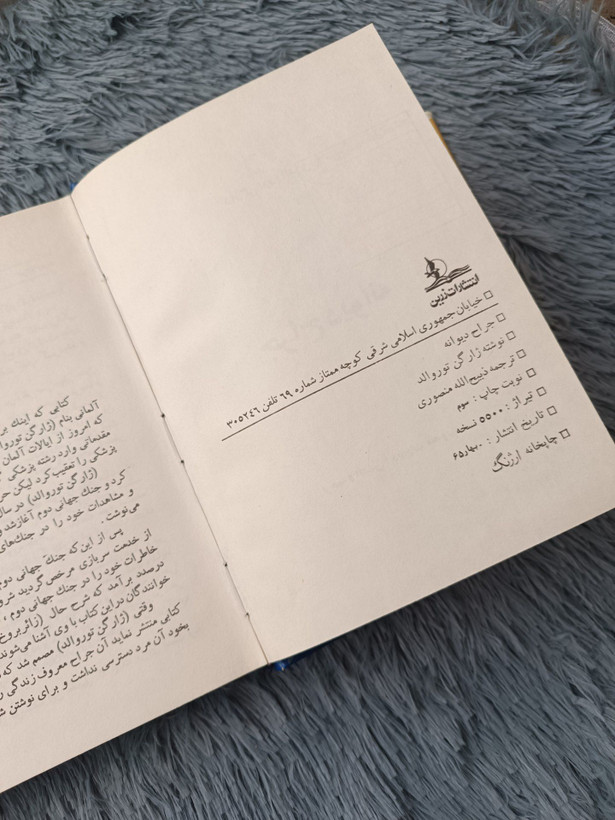 انتشارات زرین
□ خیابان جمهوری اسلامی شرقی کوچه ممتاز شماره ۶۹ تلفن ۳۰۵۲۴۶
□ جراح دیوانه
□ نوشته ژارگن توروالد
□ ترجمه ذبیح‌الله منصوری
□ نوبت چاپ : سوم
□ تیراژ : ۵۵۰۰ نسخه
□ تاریخ انتشار : بهار ۶۵
□ چاپخانه ارژنگ
کتابی که اینک بر
آلمانی بنام (ژارگن توروا
که امروز از ایالات آلمان
مقدماتی وارد رشته پزشکی
پزشکی را تعقیب کرد لیکن حر
(ژارگن توروالد) در سال
کرد و جنک جهانی دوم آغاز شد و
و مشاهدات خود را در جنک‌های
می‌نوشت .
پس از این که جنک جهانی دوم
از خدمت سربازی مرخص گردید شرو
خاطرات خود را در جنک جهانی دوم ،
درصدد برآمد که شرح حال (زائربروخ
خوانندگان در این کتاب با وی آشنا می‌شوند
وقتی (ژارگن توروالد) مصمم شد که
کتابی منتشر نماید آن جراح معروف زندگی ر
بخود آن مرد دسترسی نداشت و برای نوشتن ش